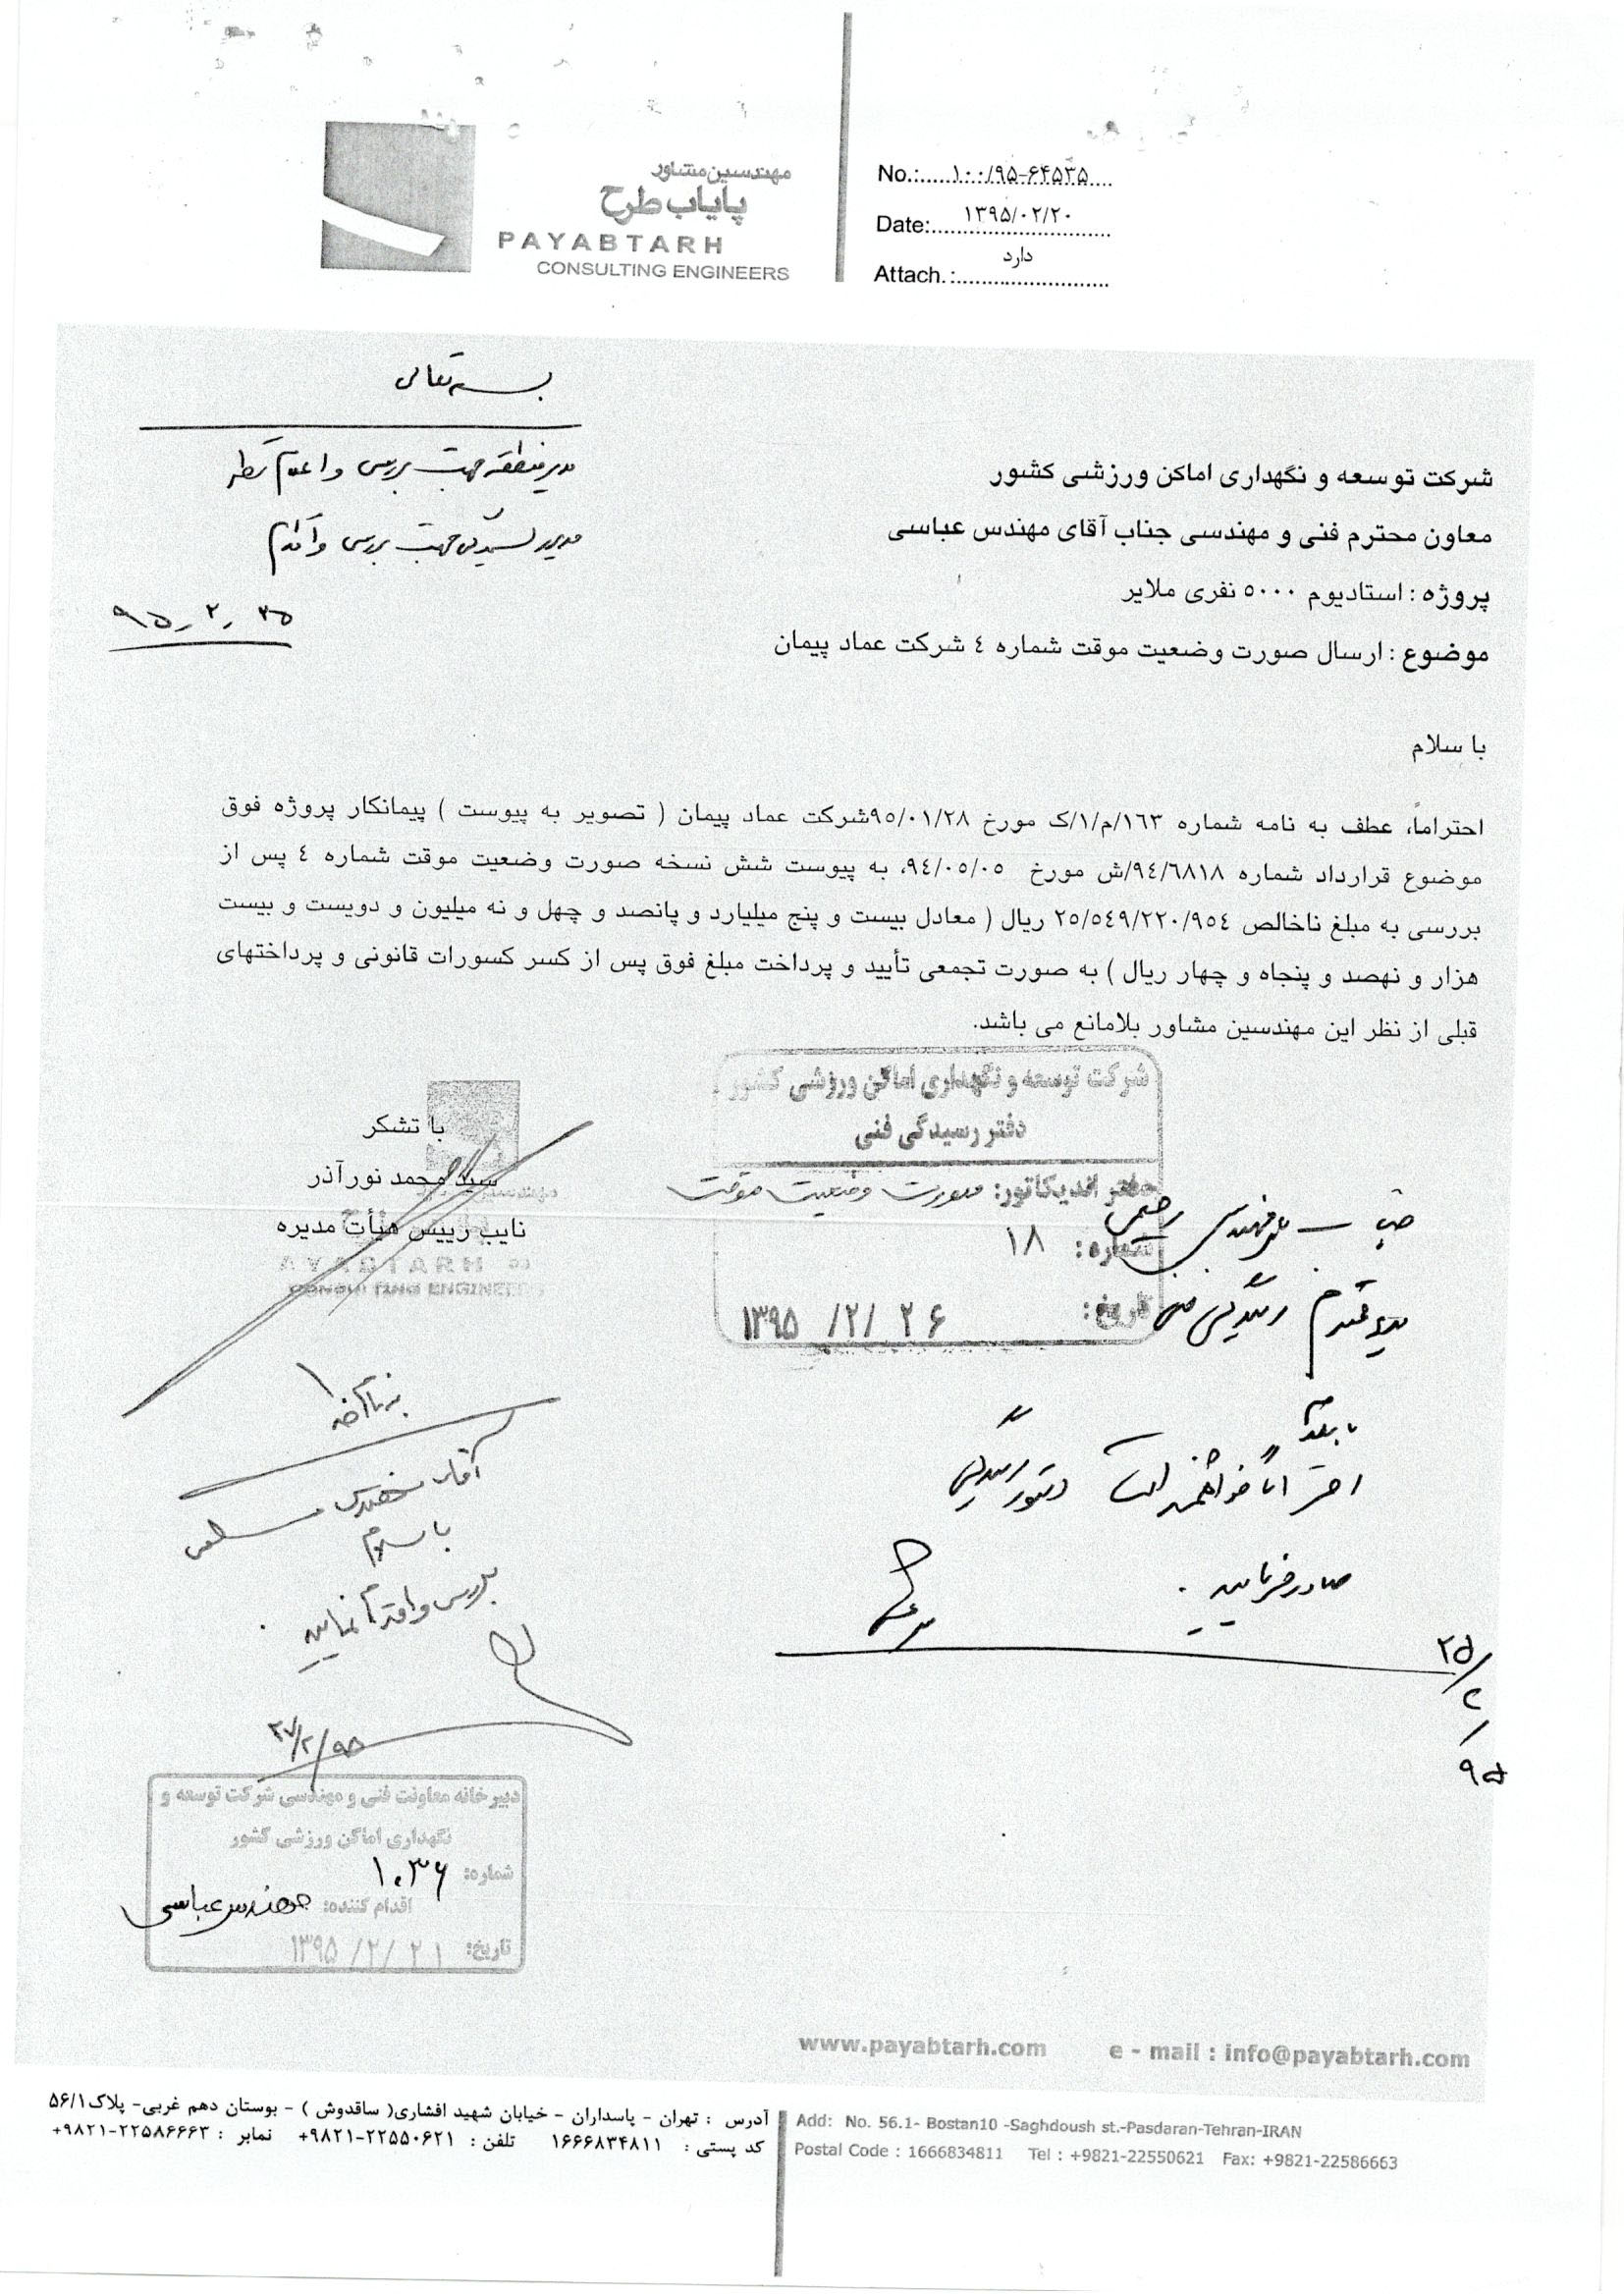 مهندسین مشاور
پایاب طرح
PAYABTARH
CONSULTING ENGINEERS
No.:.....۱۰۰/۹۵-۶۴۵۳۵....
Date:....۱۳۹۵/۰۲/۲۰....
Attach.:....دارد....
بسمه تعالی
مدیر منطقه جهت بررسی و اعلام نظر
مدیر رسیدگی جهت بررسی و اقدام
۹۵-۲-۲۵
شرکت توسعه و نگهداری اماکن ورزشی کشور
معاون محترم فنی و مهندسی جناب آقای مهندس عباسی
پروژه : استادیوم ۵۰۰۰ نفری ملایر
موضوع : ارسال صورت وضعیت موقت شماره ٤ شرکت عماد پیمان
با سلام
احتراماً، عطف به نامه شماره ۱۶۳/م/۱/ک مورخ ۹۵/۰۱/۲۸شرکت عماد پیمان ( تصویر به پیوست ) پیمانکار پروژه فوق
موضوع قرارداد شماره ۹٤/۶۸۱۸/ش مورخ ۹٤/۰۵/۰۵، به پیوست شش نسخه صورت وضعیت موقت شماره ٤ پس از
بررسی به مبلغ ناخالص ۲۵/۵٤۹/۲۲۰/۹۵٤ ریال ( معادل بیست و پنج میلیارد و پانصد و چهل و نه میلیون و دویست و بیست
هزار و نهصد و پنجاه و چهار ریال ) به صورت تجمعی تأیید و پرداخت مبلغ فوق پس از کسر کسورات قانونی و پرداختهای
قبلی از نظر این مهندسین مشاور بلامانع می باشد.
با تشکر
سید محمد نورآذر
نایب رییس هیأت مدیره
شرکت توسعه و نگهداری اماکن ورزشی کشور
دفتر رسیدگی فنی
دفتر اندیکاتور: صورت وضعیت موقت
شماره: ۱۸
تاریخ: ۲۶ /۲/ ۱۳۹۵
جناب آقای مهندس رحیمی
مدیر محترم رسیدگی فنی
با سلام
احتراماً خواهشمند است دستور رسیدگی
صادر فرمایید.
۲۵/۲/۹۵
آقای مهندس
با سلام
بررسی و اقدام نمایید.
۲۷/۲/۹۵
دبیرخانه معاونت فنی و مهندسی شرکت توسعه و
نگهداری اماکن ورزشی کشور
شماره: ۱۰۳۶
اقدام کننده: مهندس عباسی
تاریخ: ۲۱ /۲/ ۱۳۹۵
www.payabtarh.com e - mail : info@payabtarh.com
آدرس : تهران - پاسداران - خیابان شهید افشاری( ساقدوش ) - بوستان دهم غربی- پلاک۵۶/۱
کد پستی : ۱۶۶۶۸۳۴۸۱۱ تلفن : ۲۲۵۵۰۶۲۱-۹۸۲۱+ نمابر : ۲۲۵۸۶۶۶۳-۹۸۲۱+
Add: No. 56.1- Bostan10 -Saghdoush st.-Pasdaran-Tehran-IRAN
Postal Code : 1666834811 Tel : +9821-22550621 Fax: +9821-22586663